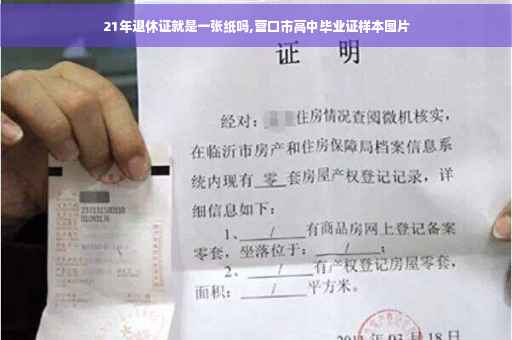 21年退休证就是一张纸吗,营口市高中毕业证样本图片
证 明
经对: 住房情况查阅微机核实,
在临沂市房产和住房保障局档案信息系
统内现有 零 套房屋产权登记记录, 详
细信息如下:
1、 / 有商品房网上登记备案
零套, 坐落位于: / ;
2、 / 有产权登记房屋零套,
面积: / 平方米。
03月18日